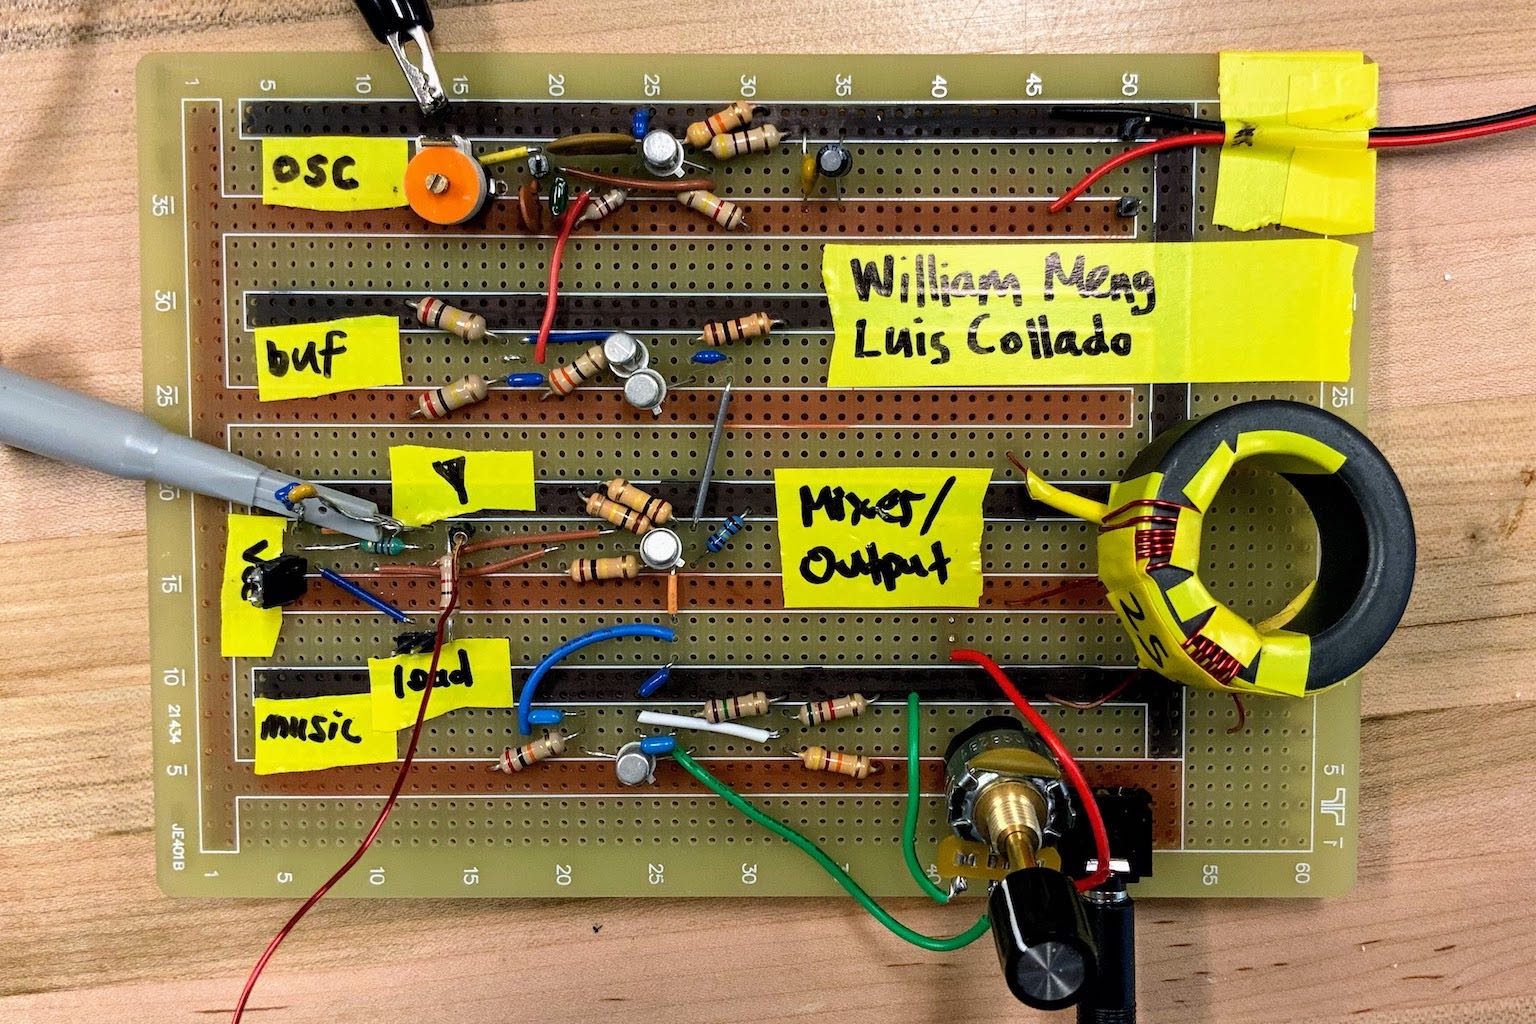 1 5 10 15 20 25 30 35 40 45 50
osc
35
William Meng
Luis Collado
30
buf
25
25
20
Mixer/
Output
15
25
load
10
music
21434
5
5
JE401B
1
1 5 10 15 20 25 30 40 55 60